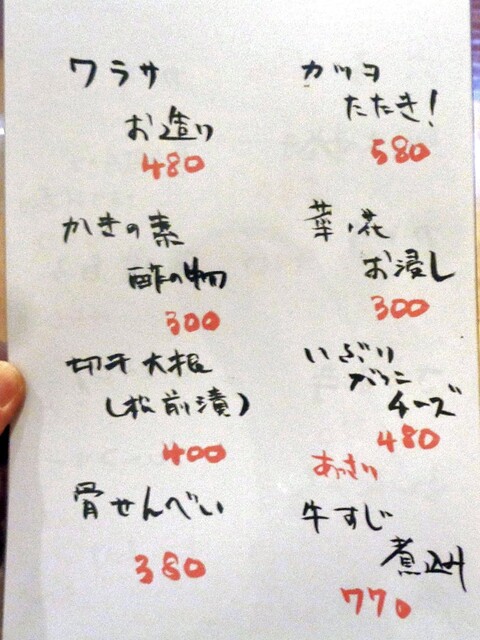 ワラサ
お造り
480
かきの素
酢の物
300
切干大根
(松前漬)
400
骨せんべい
380
カツヲ
たたき!
580
菜ノ花
お浸し
300
いぶり
ガッコ
チーズ
480
あっさり
牛すじ
煮込み
770